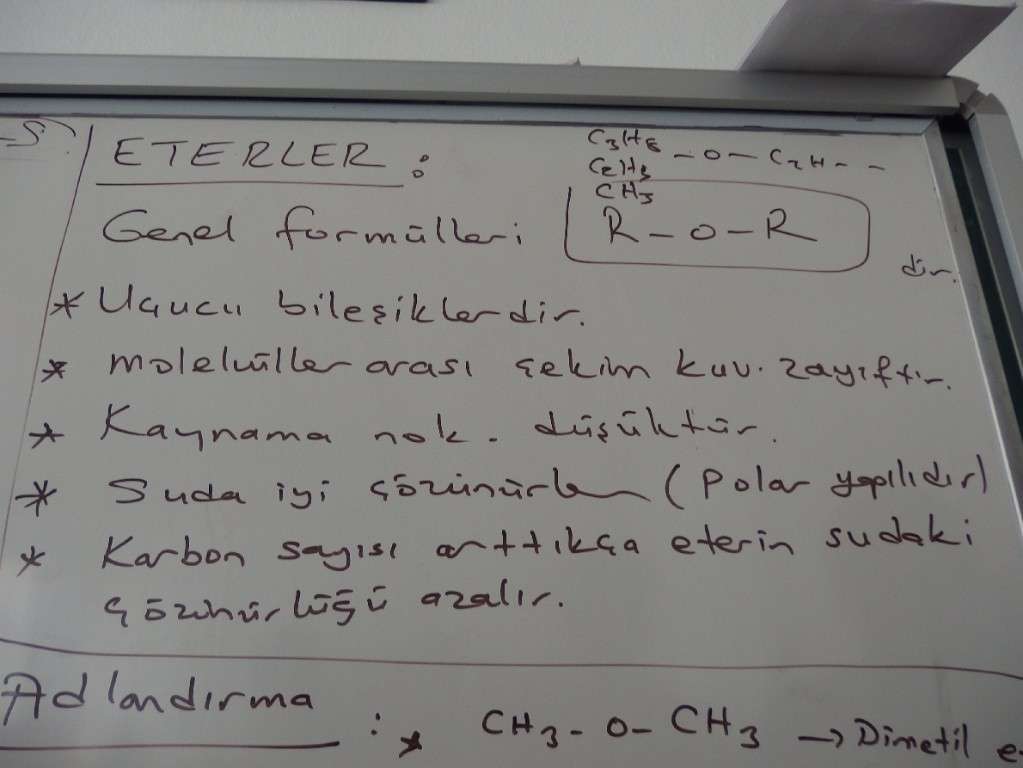 -S
ETERLER :
C3H8
C2H5 -O- C2H--
CH3
Genel formülleri R-O-R dir.
* Uçucu bileşiklerdir.
* moleküller arası çekim kuv. zayıftır.
* Kaynama nok. düşüktür.
* Suda iyi çözünürler (Polar yapılıdır)
* Karbon sayısı arttıkça eterin sudaki
çözünürlüğü azalır.
Adlandırma : * CH3-O-CH3 → Dimetil e